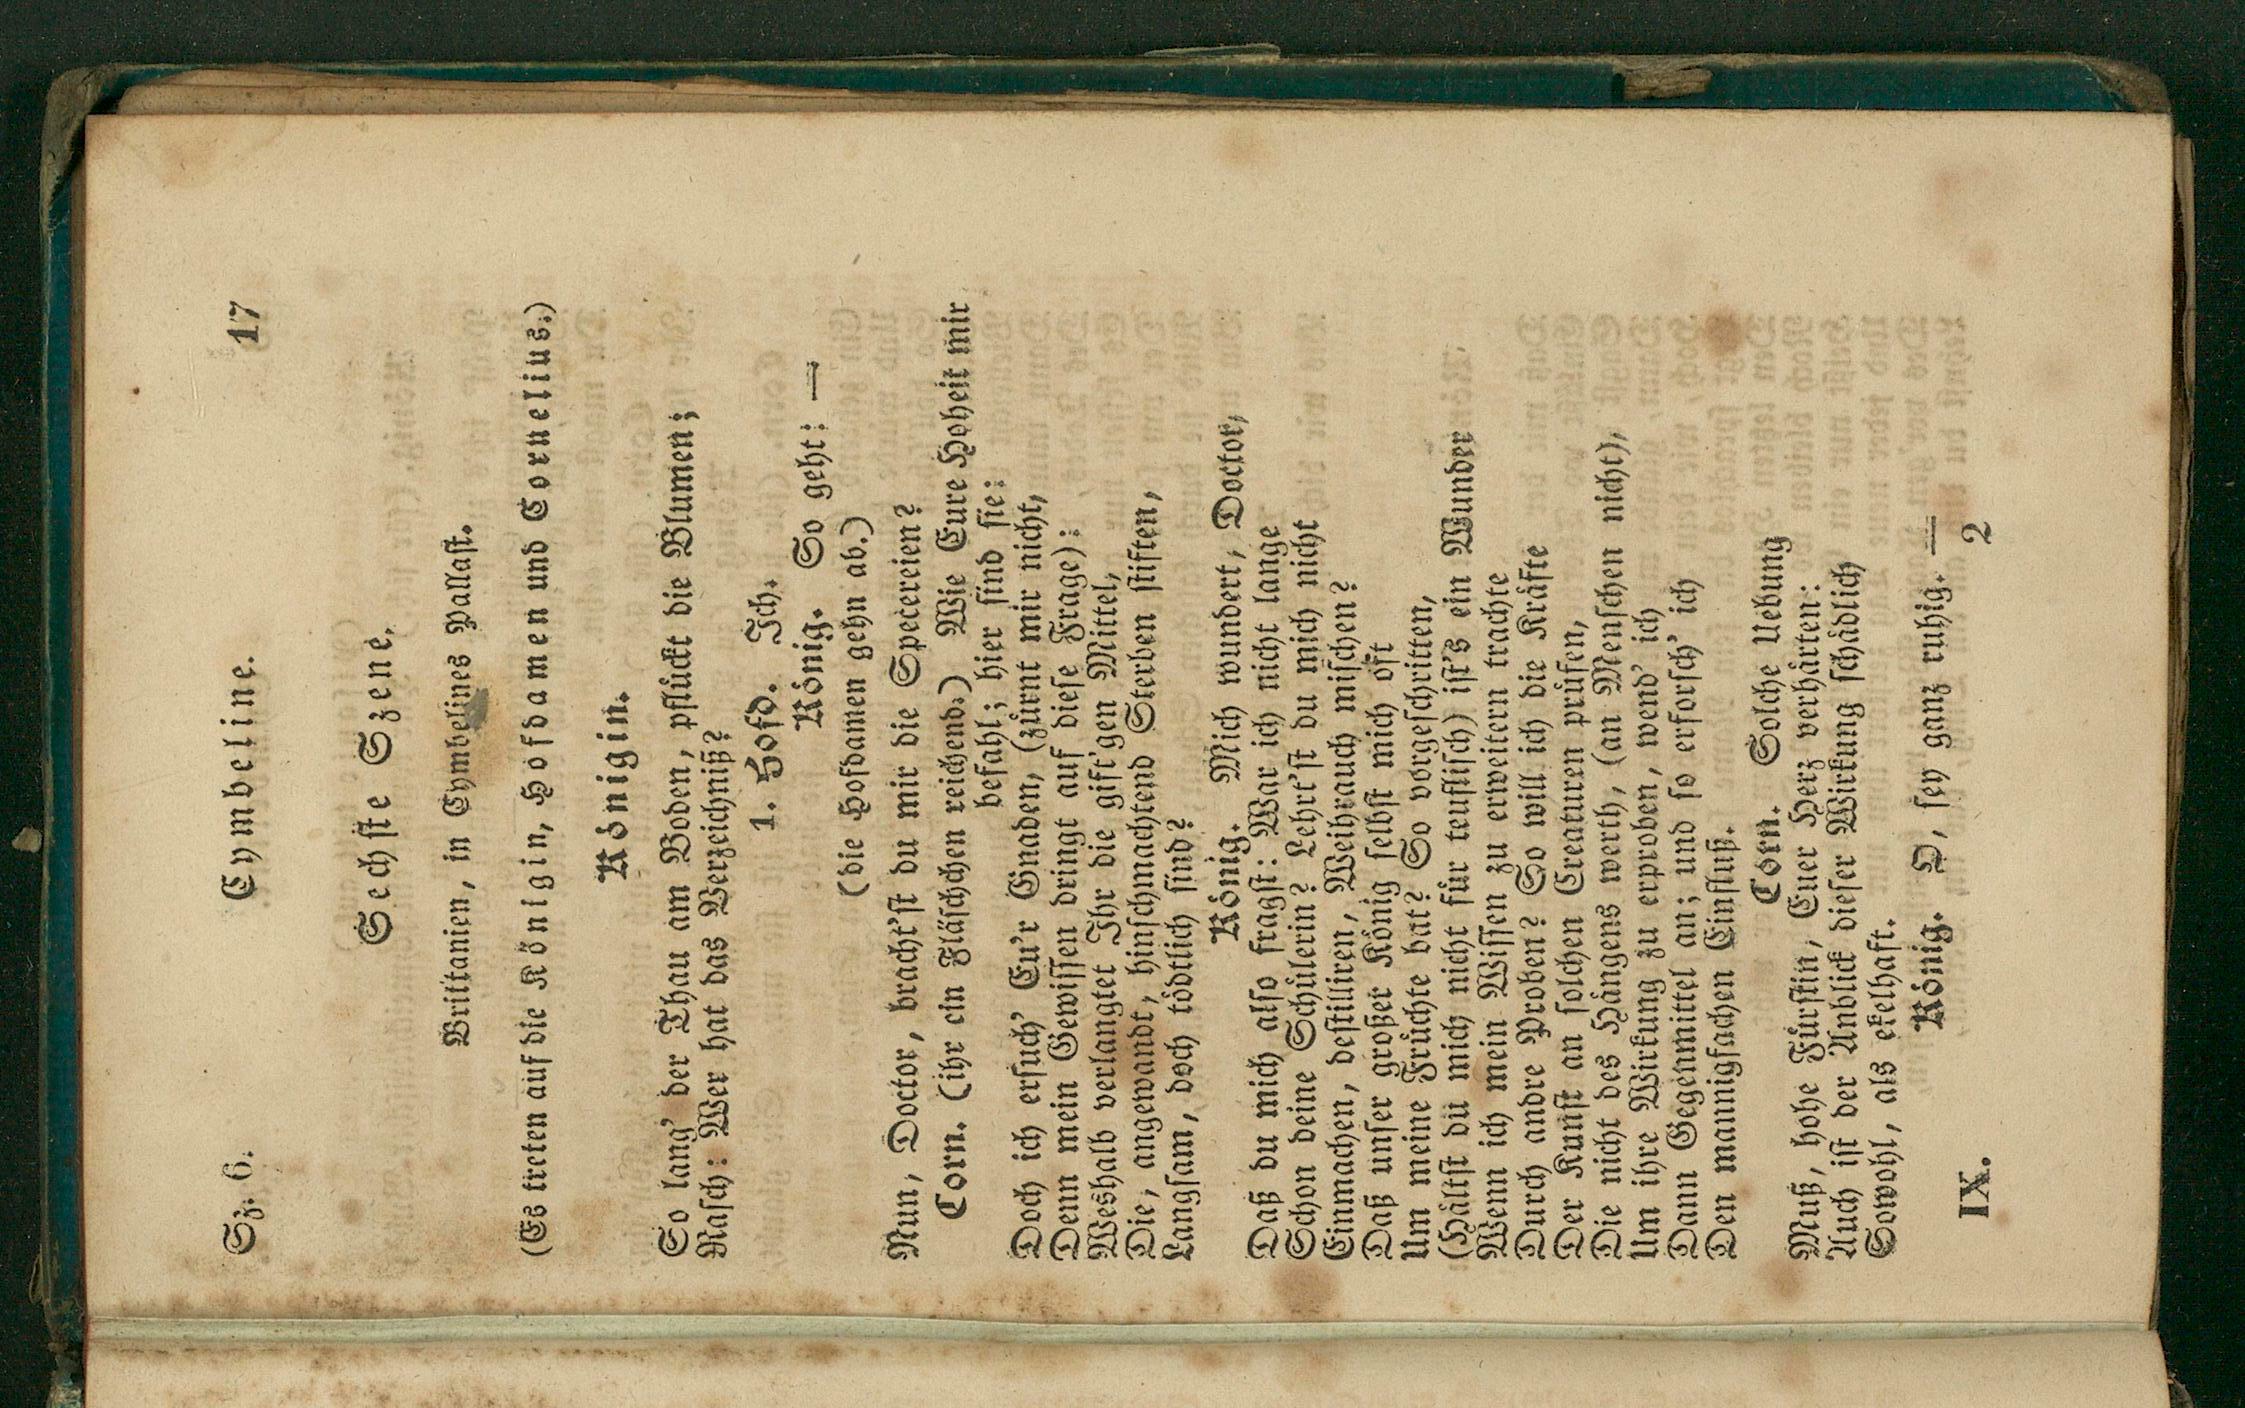 Sz. 6. Cymbeline. 17
Sechste Szene.
Brittanien, in Cymbelines Pallast.
(Es treten auf die Königin, Hofdamen und Cornelius.)
Königin.
So lang' der Thau am Boden, pflückt die Blumen;
Rasch: Wer hat das Verzeichniß?
1. Hofd. Ich.
König. So geht: —
(die Hofdamen gehn ab.)
Nun, Doctor, bracht'st du mir die Specereien?
Corn. (ihr ein Fläschchen reichend.) Wie Eure Hoheit mir
befahl; hier sind sie:
Doch ich ersuch' Eu'r Gnaden, (zürnt mir nicht,
Denn mein Gewissen dringt auf diese Frage):
Weshalb verlangtet Ihr die gift'gen Mittel,
Die, angewandt, hinschmachtend Sterben stiften,
Langsam, doch tödtlich sind?
König. Mich wundert, Doctor,
Daß du mich also fragst: War ich nicht lange
Schon deine Schülerin? Lehrt'st du mich nicht
Einmachen, destilliren, Weihrauch mischen?
Daß unser großer König selbst mich oft
Um meine Früchte bat? So vorgeschritten,
(Hältst du mich nicht für teuflisch) ist's ein Wunder
Wenn ich mein Wissen zu erweitern trachte
Durch andre Proben? So will ich die Kräfte
Der Kunst an solchen Creaturen prüfen,
Die nicht des Hängens werth, (an Menschen nicht),
Um ihre Wirkung zu erproben, wend' ich
Dann Gegenmittel an; und so erforsch' ich
Den mannigfachen Einfluß.
Corn. Solche Uebung
Muß, hohe Fürstin, Euer Herz verhärten:
Auch ist der Anblick dieser Wirkung schädlich
Sowohl, als ekelhaft.
König. O, sey ganz ruhig. —
IX. 2